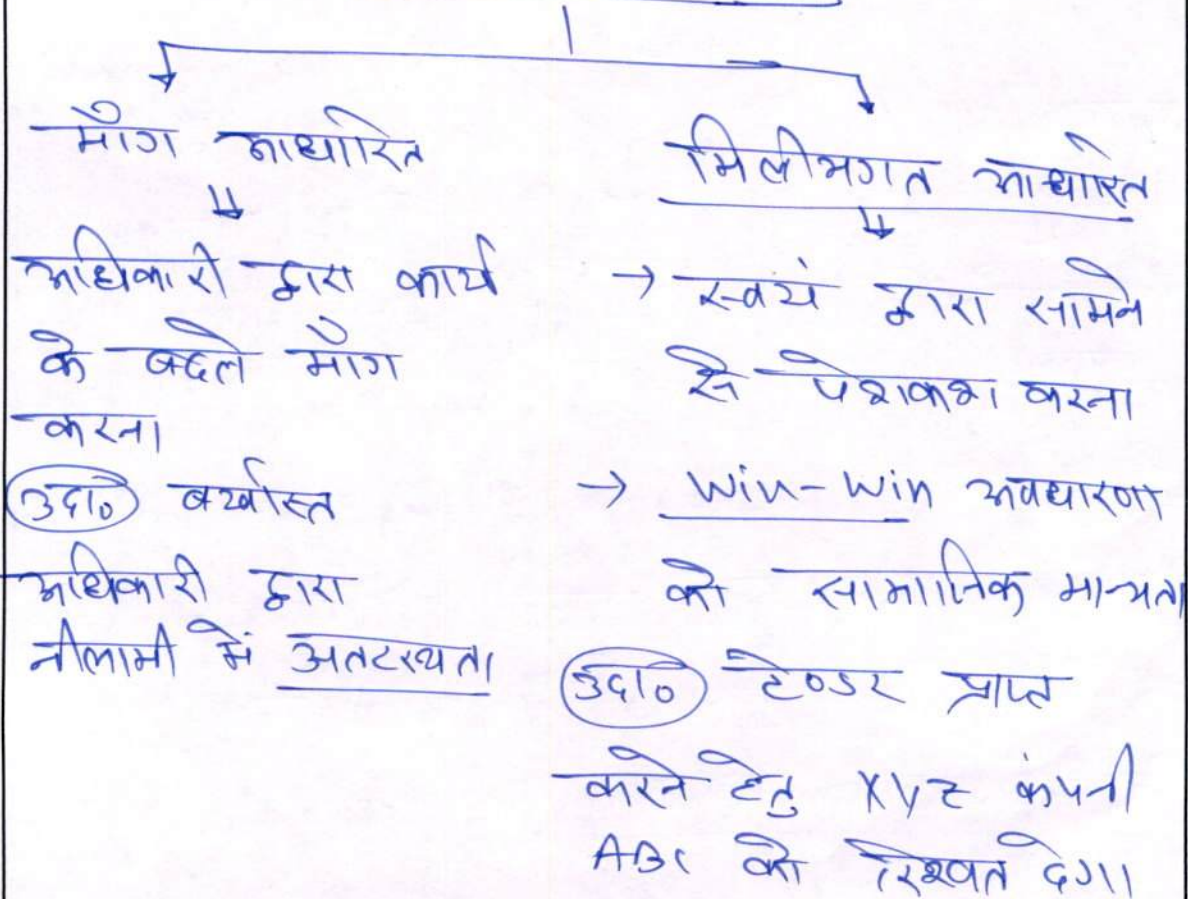 माँग आधारित
अधिकारी द्वारा कार्य
के बदले माँग
करना
उदा० बर्खास्त
अधिकारी द्वारा
नीलामी में अतटस्थता
मिलीभगत आधारित
→ स्वयं द्वारा सामने
से पेशकश करना
→ Win-Win अवधारणा
को सामाजिक मान्यता
उदा० टेण्डर प्राप्त
करने हेतु XYZ कंपनी
ABC को रिश्वत देगा